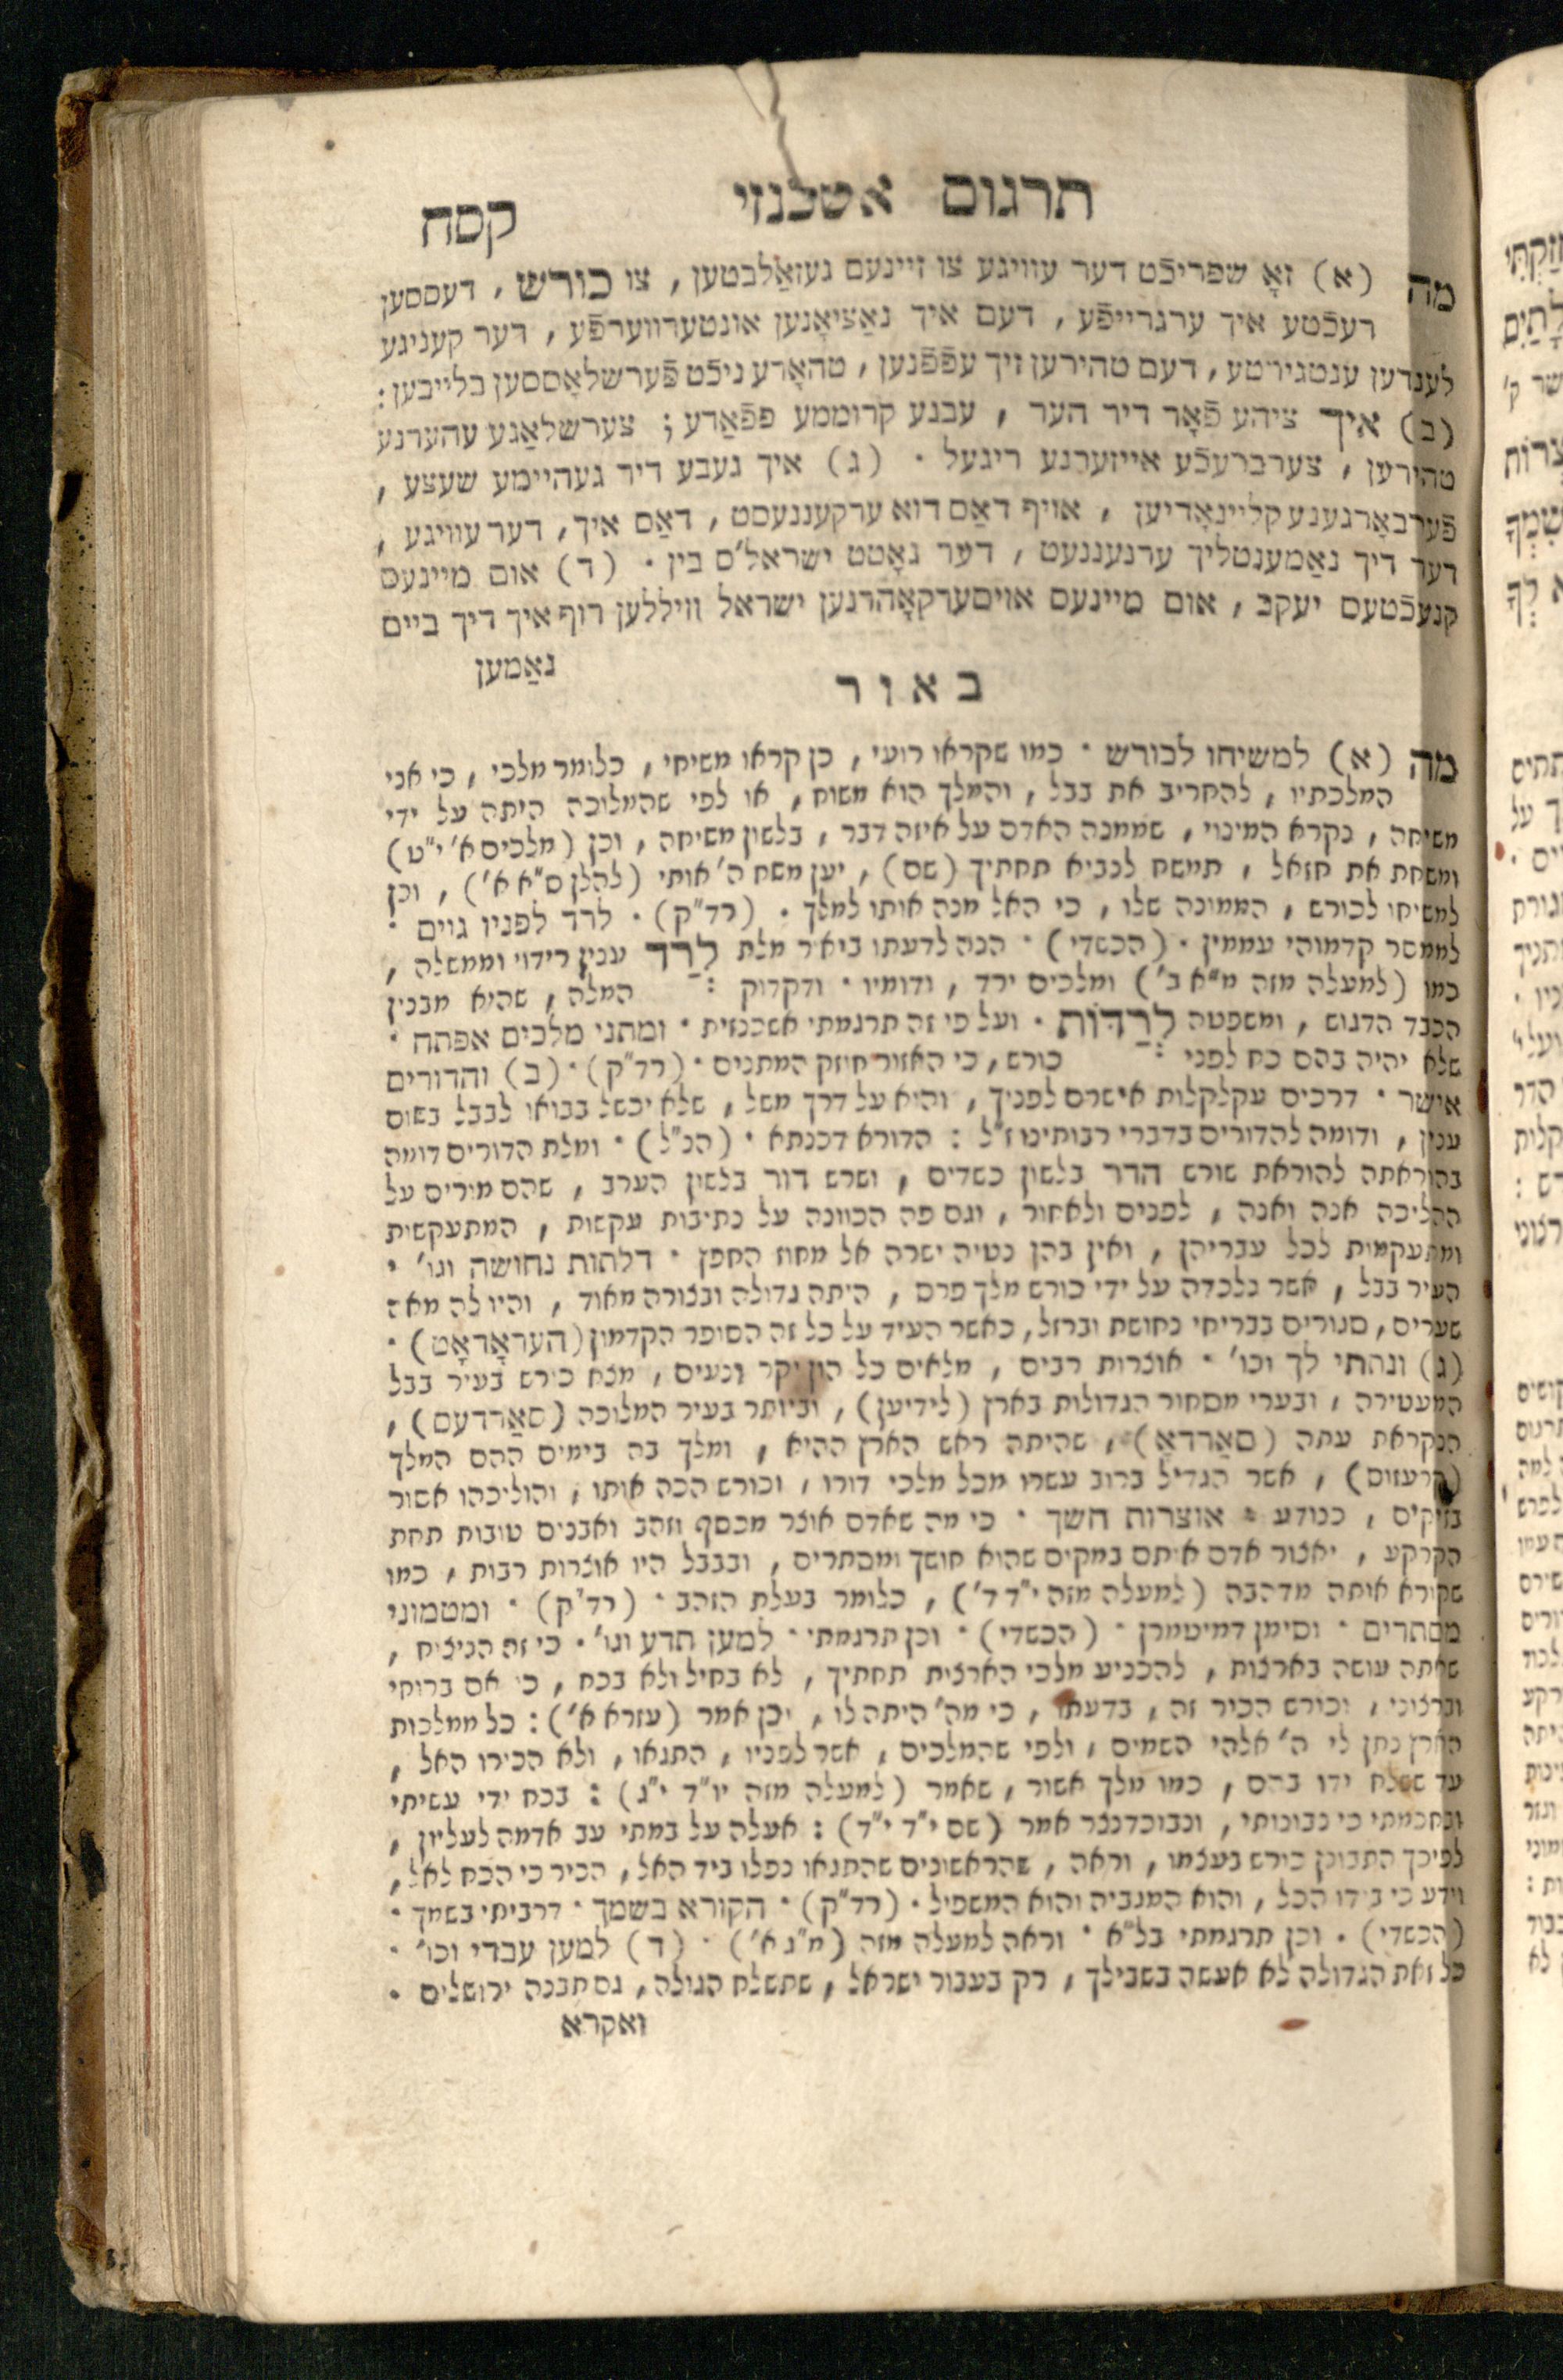 תרגום אשכנזי
קסח
מה (א) זאָ שפריכֿט דער עוויגע צו זיינעם געזאַלבטען, צו כורש, דעססען
רעכֿטע איך ערגרייפֿע, דעם איך נאַציאָנען אונטערווערפֿע, דער קעניגע
לענדען ענטגירטע, דעם טהירען זיך עפֿפֿנען, טהאָרע ניכֿט פֿערשלאָססען בלייבען:
(ב) איך ציהע פֿאָר דיר הער, עבנע קרוממע פפֿאַדע; צערשלאַגע עהערנע
טהירען, צערברעכֿע אייזערנע ריגעל. (ג) איך געבע דיר געהיימע שעצע,
פֿערבאָרגענע קליינאָדיען, אויף דאַס דוא ערקעננעסט, דאַס איך, דער עוויגע,
דער דיך נאַמענטליך ערנעננעט, דער גאָטט ישראל'ס בין. (ד) אום מיינעס
קנעכֿטעס יעקב, אום מיינעס אויסערקאָהרנען ישראל ווילל‏ען רוף איך דיך ביים
נאַמען
באור
מה (א) למשיחו לכורש · כמו שקראו רועי, כן קראו משיחי, כלומר מלכי, כי אני
המלכתיו, להחריב את בבל, והמלך הוא משוח, או לפי שהמלוכה היתה על ידי
משיחה, נקרא המינוי, שממנה האדם על איזה דבר, בלשון משיחה, וכן (מלכים א' י"ט)
ומשחת את חזאל, תמשח לנביא תחתיך (שם), יען משח ה' אותי (להלן ס"א א'), וכן
למשיחו לכורש, הממונה שלו, כי האל מנה אותו למלך. (רד"ק) · לרד לפניו גוים ·
לממסר קדמוהי עממין · (הכשדי) · הנה לדעתו ביאר מלת לְרַד ענין רידוי וממשלה,
כמו (למעלה מזה מ"א ב') ומלכים ירד, ודומיו · ודקדוק המלה, שהיא מבנין
הכבד הדגוש, ומשפטה לְרַדּוֹת · ועל פי זה תרגמתי אשכנזית · ומתני מלכים אפתח ·
שלא יהיה בהם כח לפני כורש, כי האזור חוזק המתנים · (רד"ק) · (ב) והדורים
אישר · דרכים עקלקלות אישרם לפניך, והוא על דרך משל, שלא יכשל בבואו לבבל בשום
ענין, ודומה להדורים בדברי רבותינו ז"ל: הדורא דכנתא · (הנ"ל) · ומלת הדורים דומה
בהוראתה להוראת שורש הדר בלשון כשדים, ושרש דור בלשון הערב, שהם מורים על
ההליכה אנה ואנה, לפנים ולאחור, וגם פה הכוונה על נתיבות עקשות, המתעקשות
ומתעקמות לכל עבריהן, ואין בהן נטיה ישרה אל מחוז החפץ · דלתות נחושה וגו' ·
העיר בבל, אשר נלכדה על ידי כורש מלך פרס, היתה גדולה ובצורה מאוד, והיו לה מאה
שערים, סגורים בבריחי נחושת וברזל, כאשר העיד על כל זה הסופר הקדמון (העראָדאָט) ·
(ג) ונתתי לך וכו' · אוצרות רבים, מלאים כל הון יקר ונעים, מצא כורש בעיר בבל
המעטירה, ובערי מסחור הגדולות בארץ (לידיען), וביותר בעיר המלוכה (סאַרדעס),
הנקראת עתה (סאַרדאַ), שהיתה ראש הארץ ההיא, ומלך בה בימים ההם המלך
(קרעזוס), אשר הגדיל ברוב עשרו מכל מלכי דורו, וכורש הכה אותו, והוליכהו אסור
בזיקים, כנודע · אוצרות חשך · כי מה שאדם אוצר מכסף וזהב ואבנים טובות תחת
הקרקע, יאצור אדם אותם במקום שהוא חושך ומסתרים, ובבבל היו אוצרות רבות, כמו
שקורא אותה מדהבה (למעלה מזה י"ד ד'), כלומר בעלת הזהב · (רד"ק) · ומטמוני
מסתרים · וסימן דמיטמרן · (הכשדי) · וכן תרגמתי · למען תדע וגו' · כי זה הניצוח,
שאתה עושה בארצות, להכניע מלכי הארצות תחתיך, לא בחיל ולא בכח, כי אם ברוחי
וברצוני, וכורש הכיר זה, בדעתו, כי מה' היתה לו, וכן אמר (עזרא א'): כל ממלכות
הארץ נתן לי ה' אלהי השמים, ולפי שהמלכים, אשר לפניו, התגאו, ולא הכירו האל,
עד ששלח ידו בהם, כמו מלך אשור, שאמר (למעלה מזה יו"ד י"ג): בכח ידי עשיתי
ובחכמתי כי נבונותי, ונבוכדנצר אמר (שם י"ד י"ד): אעלה על במתי עב אדמה לעליון,
לפיכך התבונן כורש בעצמו, וראה, שהראשונים שהתגאו נפלו ביד האל, הכיר כי הכח לאל,
וידע כי בידו הכל, והוא המגביה והוא המשפיל · (רד"ק) · הקורא בשמך · דרביתי בשמך ·
(הכשדי) · וכן תרגמתי בל"א · וראה למעלה מזה (מ"ג א') · (ד) למען עבדי וכו' ·
כל זאת הגדולה לא אעשה בשבילך, רק בעבור ישראל, שתשלח הגולה, גם תבנה ירושלים ·
ואקרא